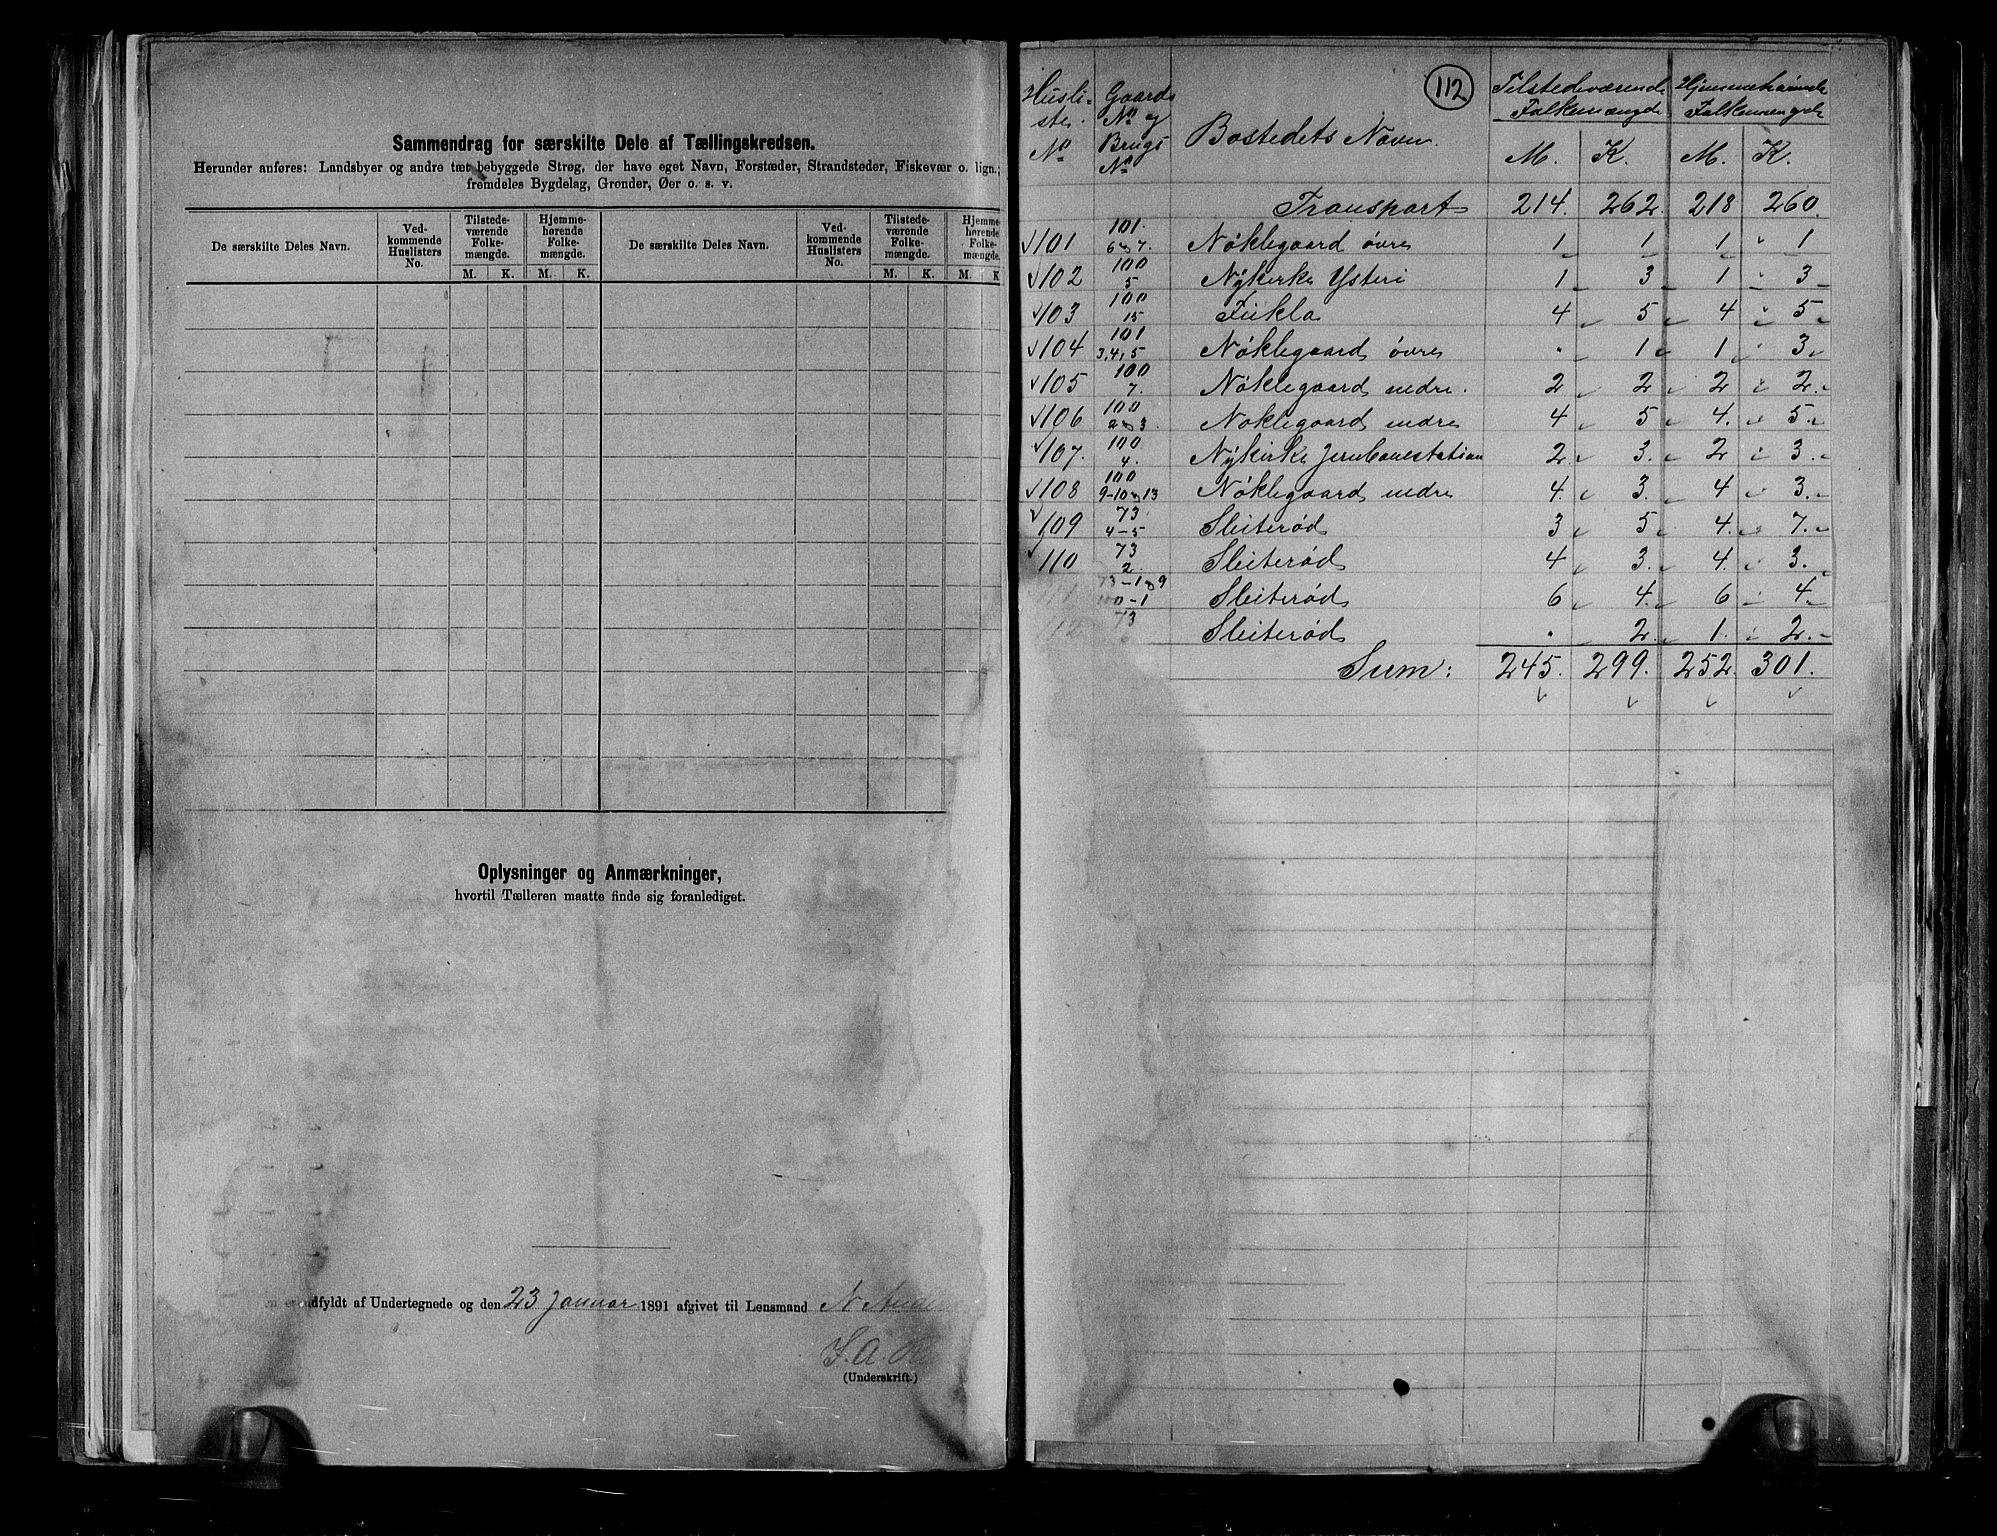 Sammendrag for særskilte Dele af Tællingskredsen.
Herunder anføres: Landsbyer og andre tæt bebyggede Strøg, der have eget Navn, Forstæder, Strandsteder, Fiskevær o. lign.;
fremdeles Bygdelag, Grender, Øer o. s. v.
De særskilte Deles Navn. Vedkommende Huslisters No. Tilstedeværende Folkemængde. Hjemmehørende Folkemængde. De særskilte Deles Navn. Vedkommende Huslisters No. Tilstedeværende Folkemængde. Hjemmehørende Folkemængde.
M. K. M. K. M. K. M. K
Oplysninger og Anmærkninger,
hvortil Tælleren maatte finde sig foranlediget.
udfyldt af Undertegnede og den 23 Januar 1891 afgivet til Lensmand N
S. A.
(Underskrift.)
112
Husliste No Gaards No og Brugs No Bostedets Navn. Tilstedeværende Folkemængde Hjemmehørende Folkemengde
M. K. M. K.
Transport 214. 262. 218 260.
101 101. 6 og 7. Nöklegaard övre 1 1 1 1
102 100 5 Nykirke Ysteri 1 3 1 3
103 100 15 Fukla 4 5 4 5
104 101 3, 4, 5 Nöklegaard övre " 1 1 3
105 100 7. Nöklegaard nedre. 2 2 2 2
106 100 2 og 3. Nöklegaard nedre 4 5 4. 5
107. 100 4. Nykirke Jernbanestation 2 3. 2 3
108 100 9-10 og 13 Nöklegaard nedre 4. 3. 4 3.
109 73 4-5 Sleiteröd 3 5 4. 7.
110 73 2. Sleiteröd 4 3. 4. 3.
111 73-1 og 9 100-1 Sleiteröd 6 4. 6 4
112 73 Sleiteröd " 2. 1. 2.
Sum: 245. 299. 252. 301.